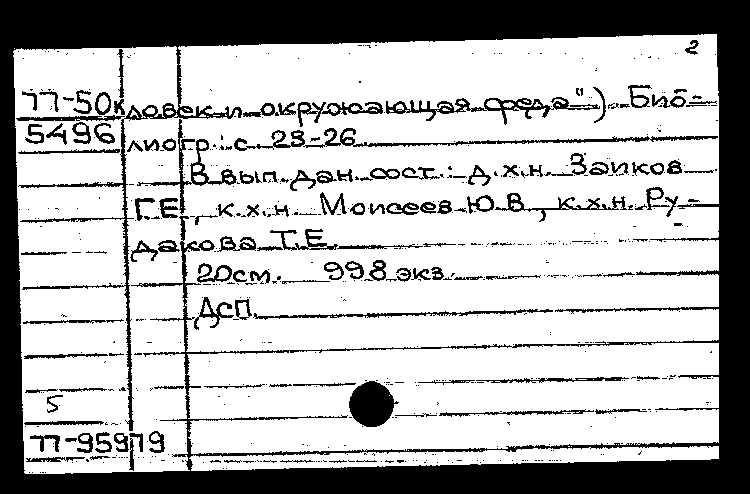 2
77-50к ловек и окружающая среда") Биб-
5496 лиогр.: с. 23-26
В вып. дан. сост.: д.х.н. Заиков
Г.Е., к.х.н. Моисеев Ю.В., к.х.н. Ру-
дакова Т.Е.
20см. 998 экз.
Дсп.
5
77-95979